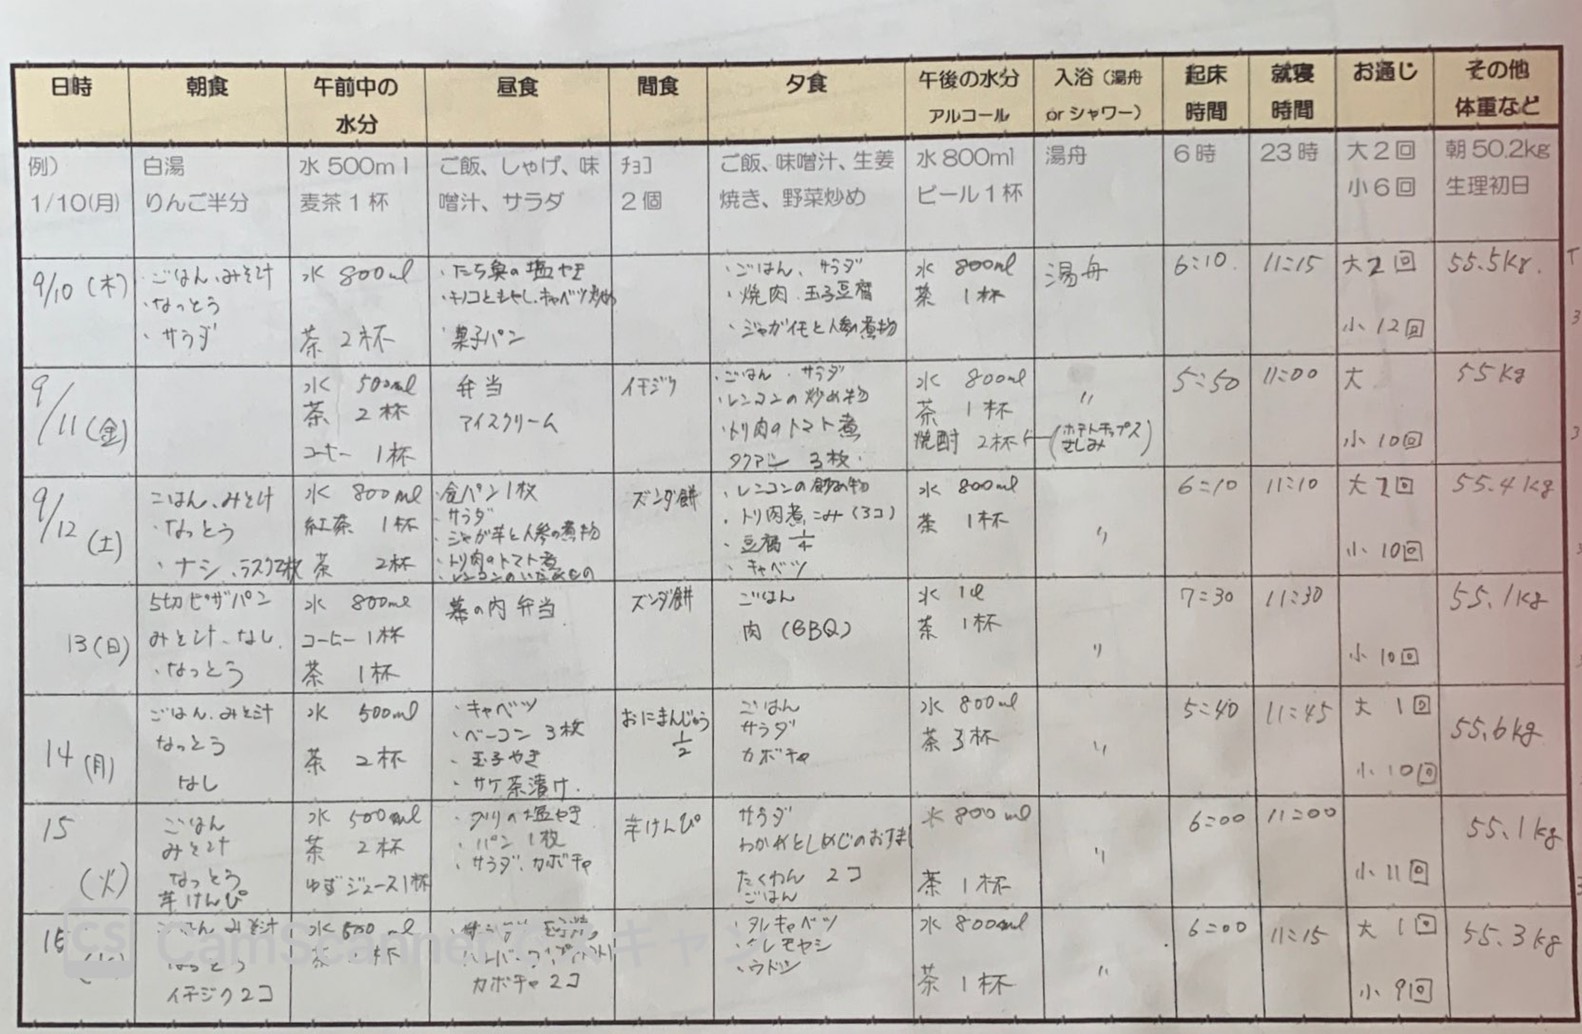 日時 朝食 午前中の水分 昼食 間食 夕食 午後の水分 アルコール 入浴（湯舟 or シャワー） 起床時間 就寝時間 お通じ その他 体重など
例） 白湯 水 500ml ご飯、しゃげ、味 チョコ ご飯、味噌汁、生姜 水 800ml 湯舟 6時 23時 大2回 朝50.2kg
1/10(月) りんご半分 麦茶1杯 噌汁、サラダ 2個 焼き、野菜炒め ビール1杯 小6回 生理初日
9/10 (木) ・ごはん、みそ汁 水 800ml ・たち魚の塩やき ・ごはん、サラダ 水 800ml 湯舟 6:10 11:15 大2回 55.5kg.
・なっとう ・キノコともやし、キャベツ炒め ・焼肉 玉子豆腐 茶 1杯
・サラダ 茶 2杯 菓子パン ・ジャガイモと人参の煮物 小 12回
9/11 (金) 水 500ml 弁当 イチジク ・ごはん、サラダ 水 800ml 〃 5:50 11:00 大 55kg
茶 2杯 アイスクリーム ・レンコンの炒め物 茶 1杯
コーヒー 1杯 ・トリ肉のトマト煮 焼酎 2杯 (ポテトチップス さしみ) 小 10回
タクアン 3枚.
9/12 (土) ごはん、みそ汁 水 800ml ・食パン1枚 ズンダ餅 ・レンコンの炒め物 水 800ml 〃 6:10 11:10 大2回 55.4kg
・なっとう 紅茶 1杯 ・サラダ ・トリ肉煮こみ (3コ) 茶 1杯
・ナシ、ラスク2枚 茶 2杯 ・ジャガ芋と人参の煮物 ・豆腐 1/4 小 10回
・トリ肉のトマト煮 ・キャベツ
・レンコンのいためもの
13(日) 5切ピザパン 水 800ml 幕の内弁当 ズンダ餅 ごはん 水 1ℓ 〃 7:30 11:30 55.1kg
みそ汁、なし. コーヒー 1杯 肉 (BBQ) 茶 1杯
・なっとう 茶 1杯 小 10回
14(月) ごはん、みそ汁 水 500ml ・キャベツ おにまんじゅう 1/2 ごはん 水 800ml 〃 5:40 11:45 大 1回 55.6kg
なっとう 茶 2杯 ・ベーコン 3枚 サラダ 茶 3杯
なし ・玉子やき カボチャ 小 10回
・サケ茶漬け.
15(火) ごはん 水 500ml ・ブリの塩やき 芋けんぴ サラダ 水 800ml 〃 6:00 11:00 55.1kg
みそ汁 茶 2杯 ・パン 1枚 わかめとしめじのおすまし
なっとう ゆずジュース1杯 ・サラダ、カボチャ たくわん 2コ 茶 1杯 小 11回
芋けんぴ ごはん
16 ごはん みそ汁 水 500ml ・タルキャベツ 水 800ml 〃 6:00 11:15 大 1回 55.3kg
なっとう 茶 杯 モヤシ
イチジク2コ カボチャ 2コ ・ウドン 茶 1杯 小 9回
CS CamScanner でスキャン